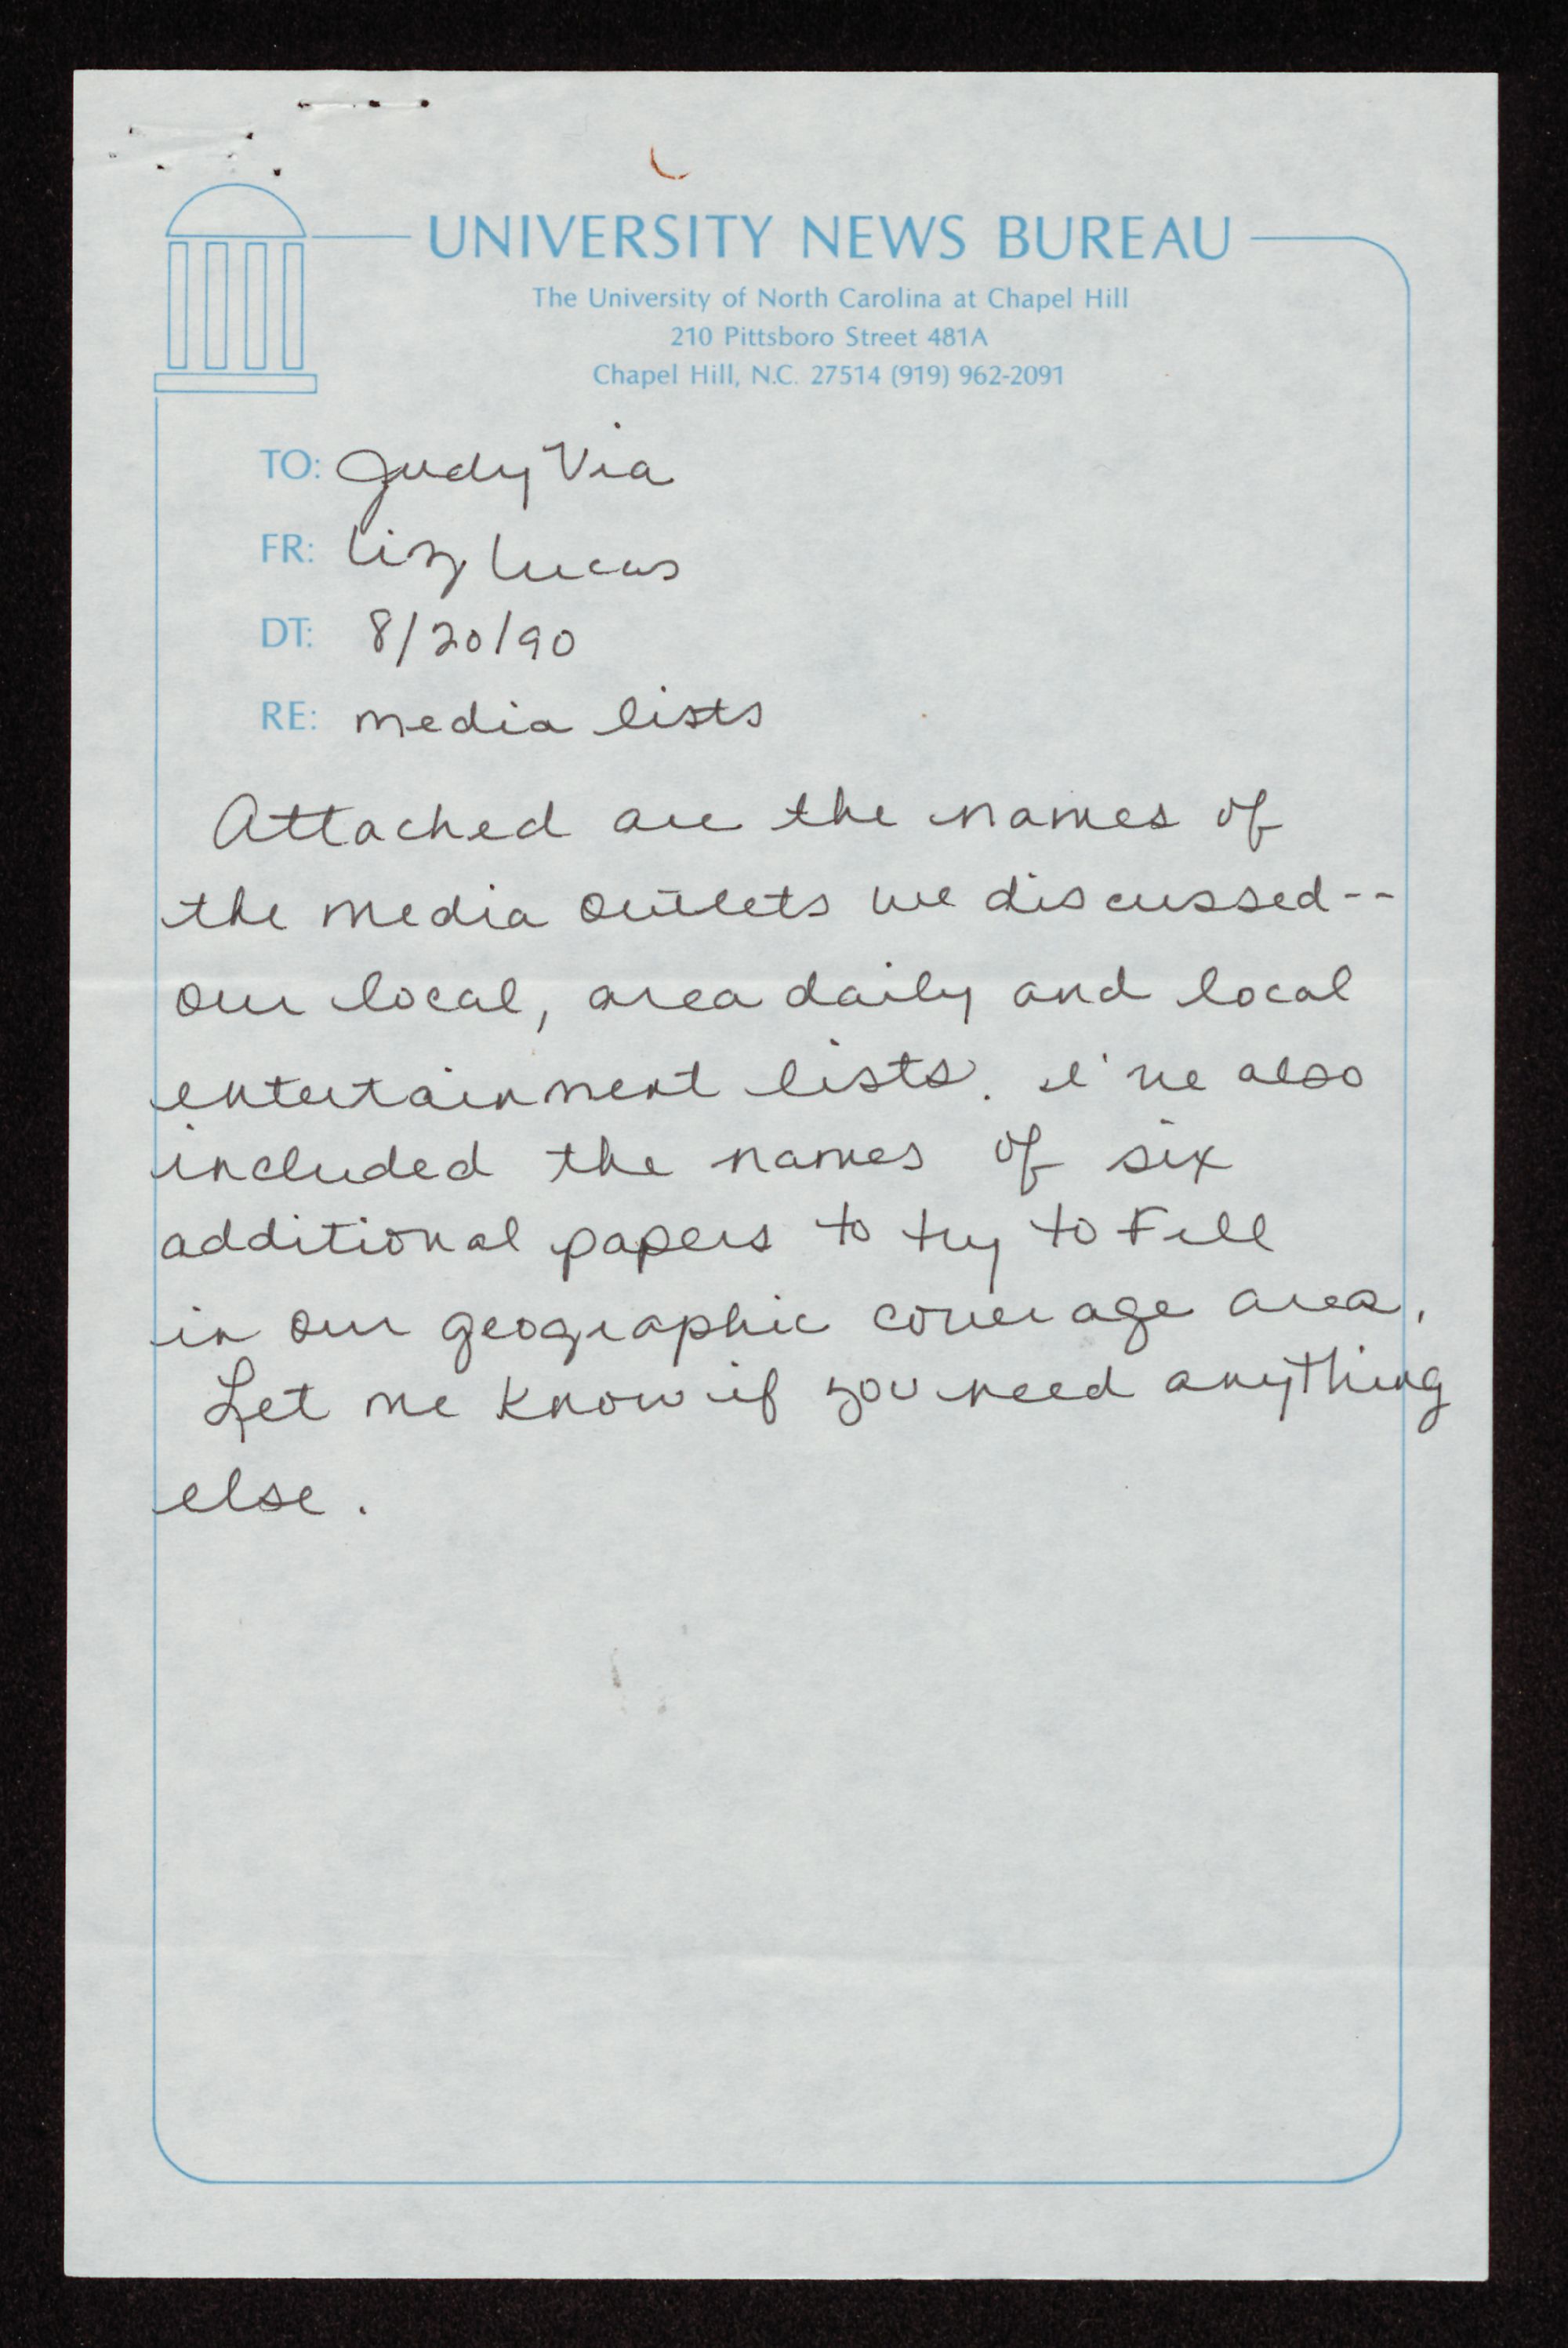 UNIVERSITY NEWS BUREAU
The University of North Carolina at Chapel Hill
210 Pittsboro Street 481A
Chapel Hill, N.C. 27514 (919) 962-2091
TO: Judy Via
FR: Liz Lucas
DT: 8/20/90
RE: media lists
Attached are the names of
the media outlets we discussed--
our local, area daily and local
entertainment lists. I've also
included the names of six
additional papers to try to fill
in our geographic coverage area.
Let me know if you need anything
else.